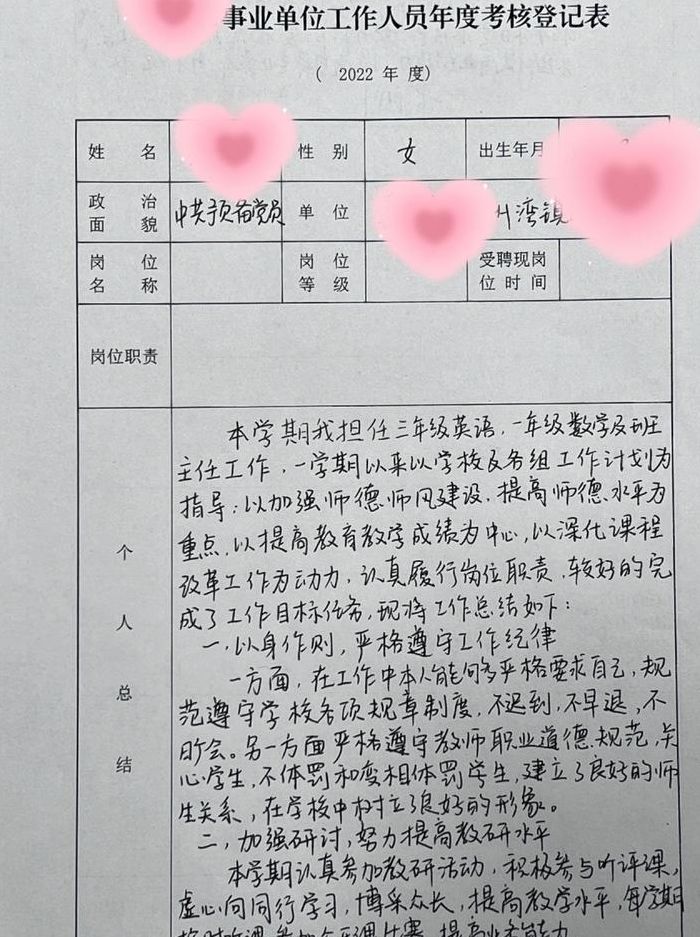 事业单位工作人员年度考核登记表
( 2022 年 度)
姓 名 性 别 女 出生年月
政 治 面 貌 中共预备党员 单 位 湾镇
岗 位 名 称 岗 位 等 级 受聘现岗位时间
岗位职责
个人总结
本学期我担任三年级英语,一年级数学及班
主任工作,一学期以来以学校及各组工作计划为
指导:以加强师德师风建设,提高师德水平为
重点,以提高教育教学成绩为中心,以深化课程
改革工作为动力,认真履行岗位职责,较好的完
成了工作目标任务,现将工作总结如下:
一、以身作则,严格遵守工作纪律
一方面,在工作中本人能够严格要求自己,规
范遵守学校各项规章制度,不迟到,不早退,不
旷会。另一方面严格遵守教师职业道德规范,关
心学生,不体罚和变相体罚学生,建立了良好的师
生关系,在学校中树立了良好的形象。
二、加强研讨,努力提高教研水平
本学期认真参加教研活动,积极参与听评课,
虚心向同行学习,博采众长,提高教学水平,每学期